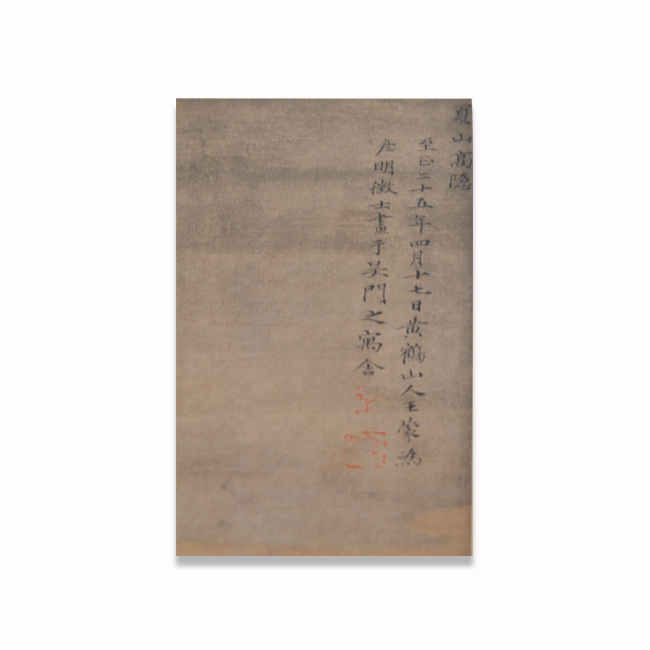 夏山高隱
至正二十五年四月十七日黃鶴山人王蒙為
彥明徵士畫于吳門之寓舍